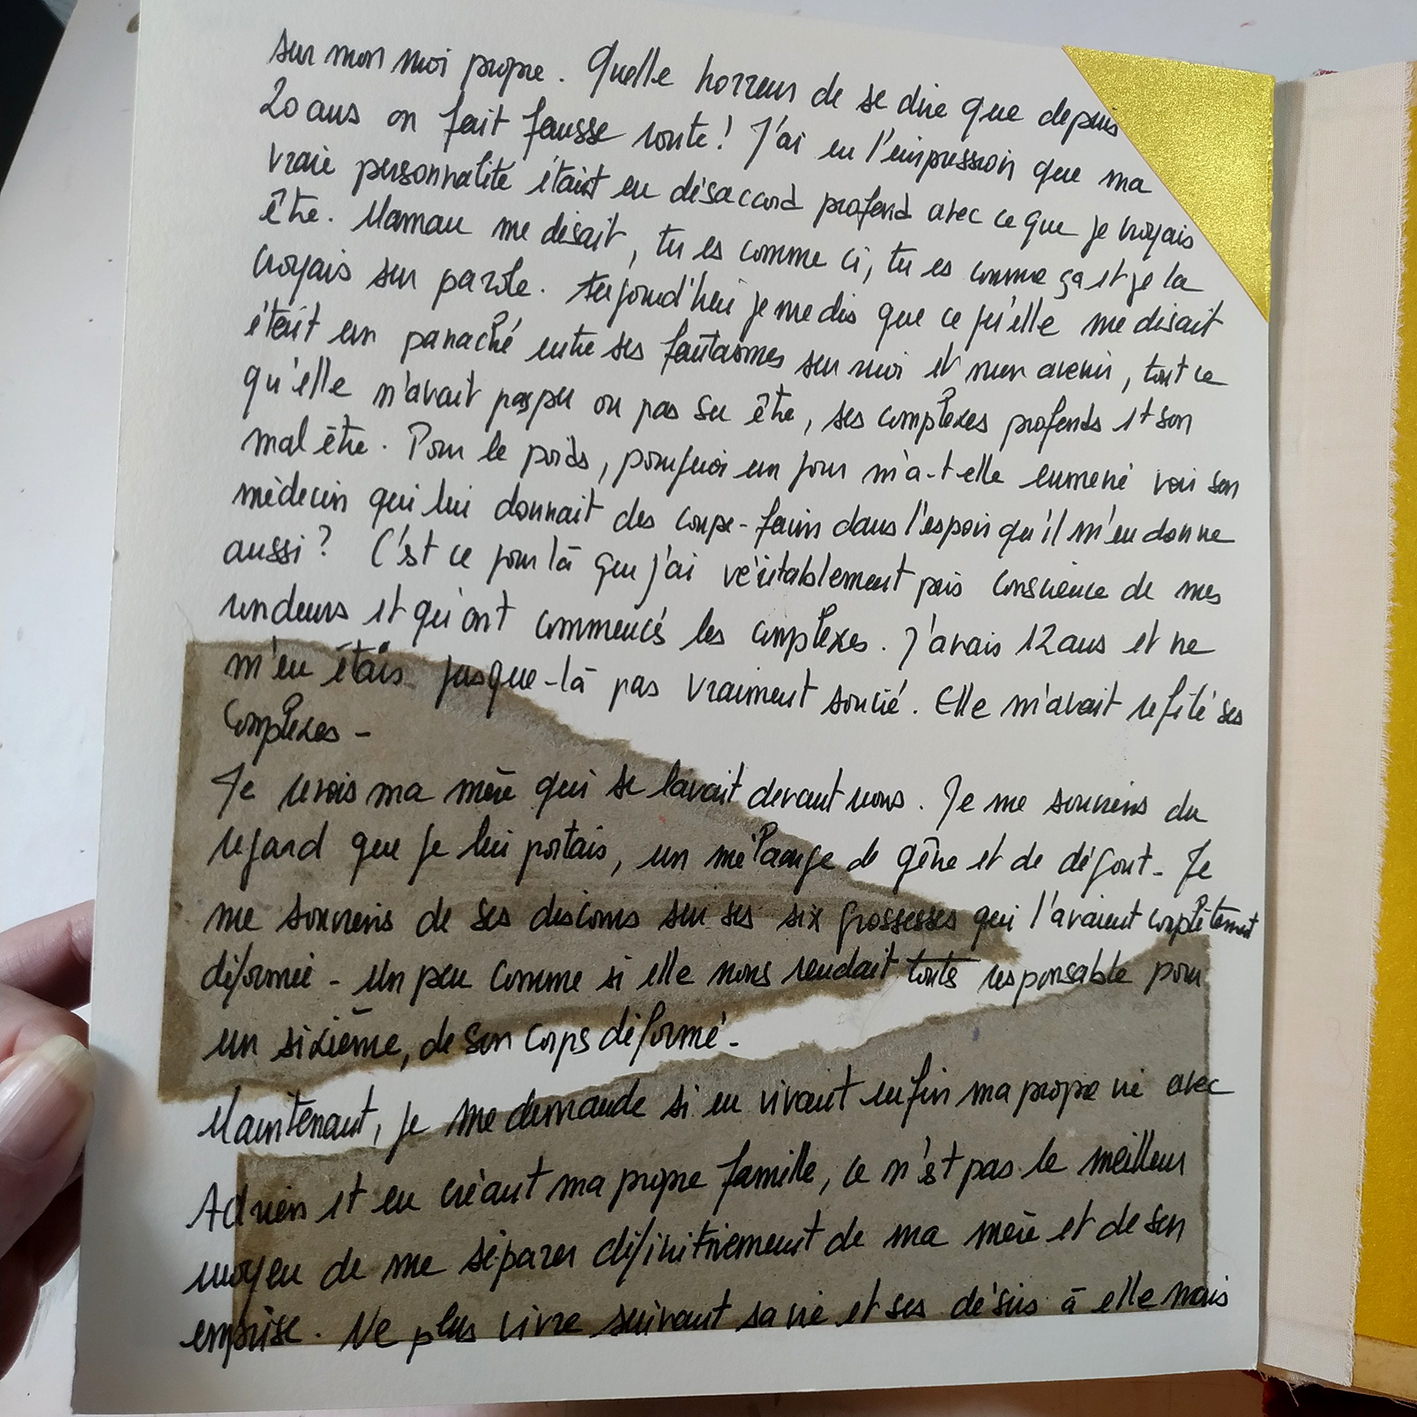 sur mon moi propre. Quelle horreur de se dire que depuis
20 ans on fait fausse route! J'ai eu l'impression que ma
vraie personnalité était en désaccord profond avec ce que je croyais
être. Maman me disait, tu es comme ci, tu es comme ça et je la
croyais sur parole. Aujourd'hui je me dis que ce qu'elle me disait
était un panaché entre ses fantasmes sur moi et mon avenir, tout ce
qu'elle n'avait pas pu ou pas su être, ses complexes profonds et son
mal être. Pour le poids, pourquoi un jour m'a-t-elle emmené voir son
médecin qui lui donnait des coupe-faim dans l'espoir qu'il m'en donne
aussi? C'est ce jour là que j'ai véritablement pris conscience de mes
rondeurs et qu'ont commencés les complexes. J'avais 12 ans et ne
m'en étais jusque-là pas vraiment soucié. Elle m'avait refilé ses
complexes -
Je revois ma mère qui se lavait devant nous. Je me souviens du
regard que je lui portais, un mélange de gêne et de dégout - Je
me souviens de ses discours sur ses six grossesses qui l'avaient complètement
déformée - Un peu comme si elle nous rendait toutes responsable pour
un sixième, de son corps déformé -
Maintenant, je me demande si en vivant enfin ma propre vie avec
Adrien et en créant ma propre famille, ce n'est pas le meilleur
moyen de me séparer définitivement de ma mère et de son
emprise. Ne plus vivre suivant sa vie et ses désirs à elle mais